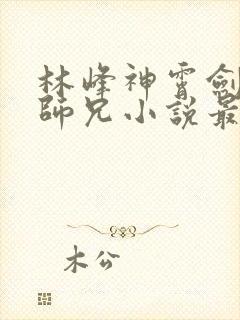 林峰神霄劍
師兄小說最
木公